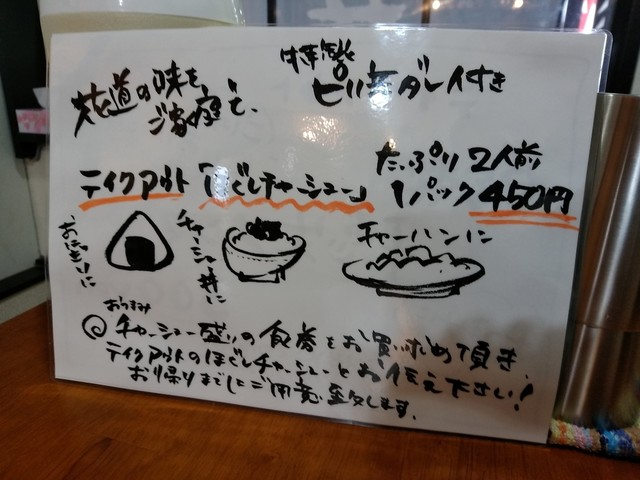 花道の味を
ご家庭で、
特製
ピリ辛ダレ付き
テイクアウト「ほぐしチャーシュー」
たっぷり2人前
1パック450円
おにぎりに
チャーシュー丼に
チャーハンに
おつまみ
◎チャーシュー盛りの食券をお買い求め頂き、
テイクアウトのほぐしチャーシューとお伝え下さい!
お帰りまでにご用意致します。